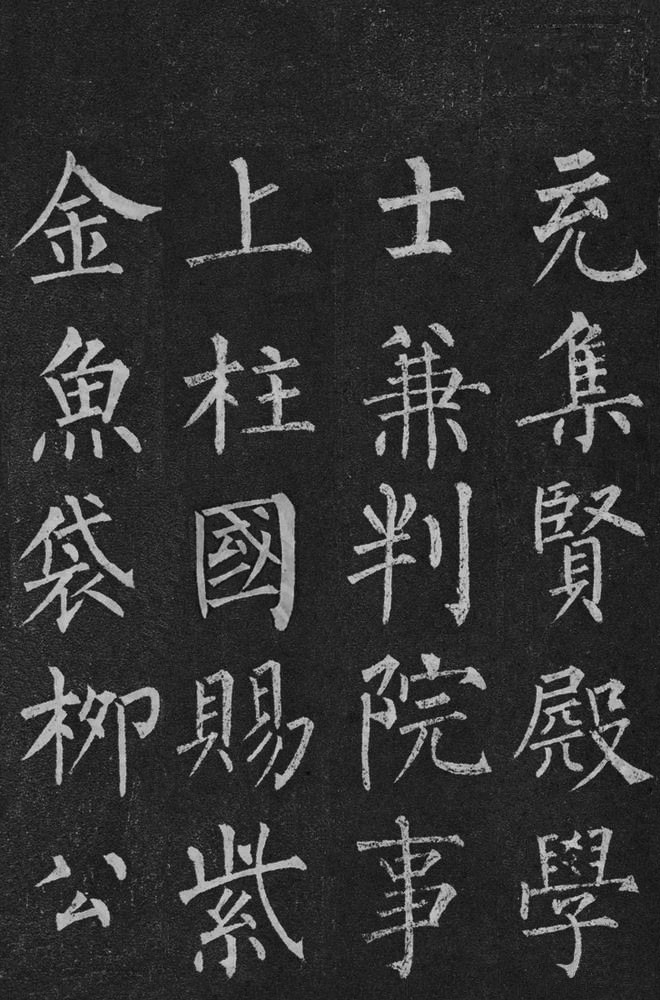 充集賢殿學
士兼判院事
上柱國賜紫
金魚袋柳公